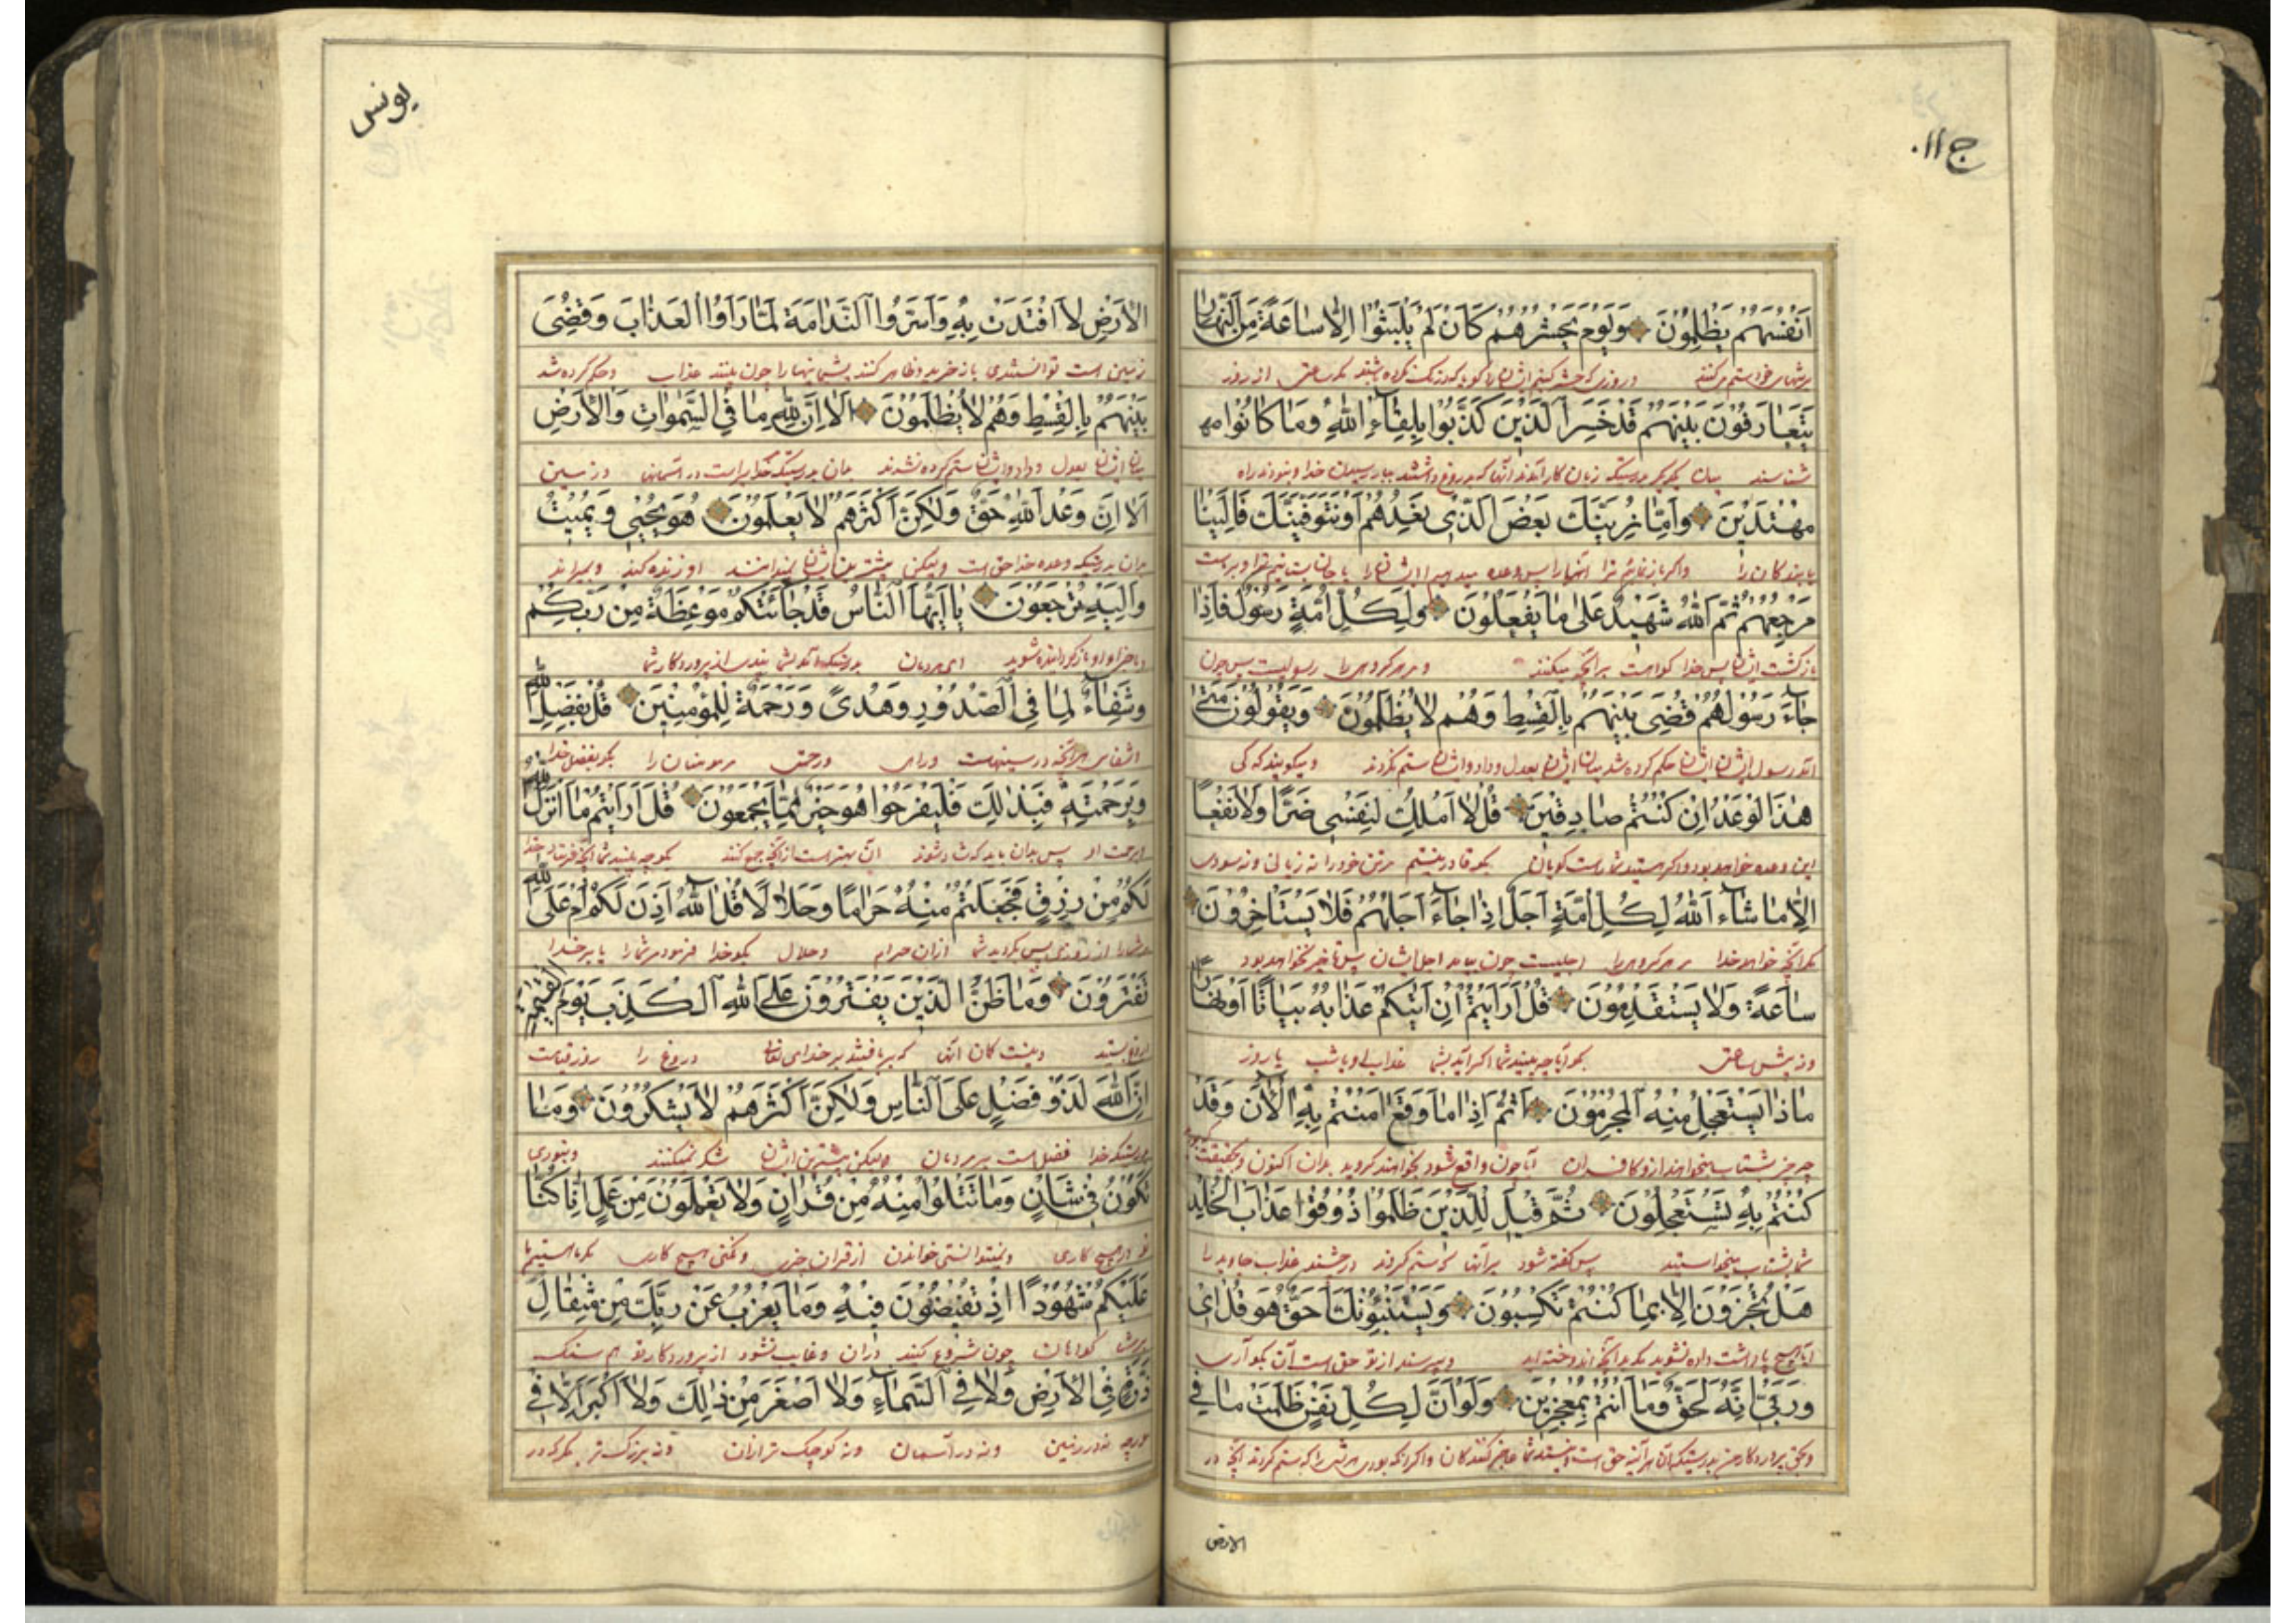 ج ۱۱
اَنْفُسَهُمْ يَظْلِمُونَ وَيَوْمَ يَحْشُرُهُمْ كَاَنْ لَمْ يَلْبَثُوا اِلَّا سَاعَةً مِنَ النَّهَارِ
ستم میکنند و روزی که حشر کنیم ایشانرا گویا که درنگ نکرده باشند مگر ساعتی از روز
يَتَعَارَفُونَ بَيْنَهُمْ قَدْ خَسِرَ الَّذِينَ كَذَّبُوا بِلِقَاءِ اللّٰهِ وَمَا كَانُوا
شناسند میان یکدیگر بدرستیکه زیان کار آمدند آنها که دروغ داشتند رسیدن خدا و نبودند راه
مُهْتَدِينَ وَاِمَّا نُرِيَنَّكَ بَعْضَ الَّذِي نَعِدُهُمْ اَوْ نَتَوَفَّيَنَّكَ فَاِلَيْنَا
یابندگان را و اگر باز نمائیم ترا
مَرْجِعُهُمْ ثُمَّ اللّٰهُ شَهِيدٌ عَلٰى مَا يَفْعَلُونَ وَلِكُلِّ اُمَّةٍ رَسُولٌ فَاِذَا
بازگشت ایشان پس خدا گواه است بر آنچه میکنند و مر هر گروهی را رسولیست پس چون
جَاءَ رَسُولُهُمْ قُضِيَ بَيْنَهُمْ بِالْقِسْطِ وَهُمْ لَا يُظْلَمُونَ وَيَقُولُونَ مَتٰى
آمد رسول ایشان حکم کرده شد میان ایشان بعدل و داد و ایشان ستم نکردند و میگویند که کی
هٰذَا الْوَعْدُ اِنْ كُنْتُمْ صَادِقِينَ قُلْ لَا اَمْلِكُ لِنَفْسِي ضَرًّا وَلَا نَفْعًا
این وعده خواهد بود اگر هستید شما راست گویان بگو قادر نیستم مر تن خود را نه زیانی و نه سودی
اِلَّا مَا شَاءَ اللّٰهُ لِكُلِّ اُمَّةٍ اَجَلٌ اِذَا جَاءَ اَجَلُهُمْ فَلَا يَسْتَأْخِرُونَ
مگر آنچه خواهد خدا مر هر گروهی را اجلیست چون بیاید اجل ایشان پس تاخیر نخواهد بود
سَاعَةً وَلَا يَسْتَقْدِمُونَ قُلْ اَرَاَيْتُمْ اِنْ اَتٰيكُمْ عَذَابُهُ بَيَاتًا اَوْ نَهَارًا
و نه پیش ساعتی بگو آیا چه بینید شما اگر آید بشما عذاب او یا شب یا روز
مَاذَا يَسْتَعْجِلُ مِنْهُ الْمُجْرِمُونَ اَثُمَّ اِذَا مَا وَقَعَ اٰمَنْتُمْ بِهِ الْاٰنَ وَقَدْ
چه چیز شتاب میخواهند از او کافران آیا چون واقع شود بخواهند گروید بدان اکنون و بحقیقت
كُنْتُمْ بِهِ تَسْتَعْجِلُونَ ثُمَّ قِيلَ لِلَّذِينَ ظَلَمُوا ذُوقُوا عَذَابَ الْخُلْدِ
شما بشتاب میخواستید پس گفته شود مر آنها که ستم کردند بچشید عذاب جاوید را
هَلْ تُجْزَوْنَ اِلَّا بِمَا كُنْتُمْ تَكْسِبُونَ وَيَسْتَنْبِئُونَكَ اَحَقٌّ هُوَ قُلْ اِي
آیا هیچ پاداشت داده نشوید مگر بدانچه اندوخته اید و میپرسند از تو حق است آن بگو آری
وَرَبِّي اِنَّهُ لَحَقٌّ وَمَا اَنْتُمْ بِمُعْجِزِينَ وَلَوْ اَنَّ لِكُلِّ نَفْسٍ ظَلَمَتْ مَا فِي
و بحق پروردگار من بدرستیکه آن هر آینه حق است و نیستید شما عاجز کنندگان و اگر آنکه بودی هر تنی را که ستم کردند آنچه در
الارض
يونس
الْاَرْضِ لَافْتَدَتْ بِهِ وَاَسَرُّوا النَّدَامَةَ لَمَّا رَاَوُا الْعَذَابَ وَقُضِيَ
زمین است توانستندی باز خرید و ظاهر کنند پشیمانیها را چون بینند عذاب و حکم کرده شد
بَيْنَهُمْ بِالْقِسْطِ وَهُمْ لَا يُظْلَمُونَ اَلَا اِنَّ لِلّٰهِ مَا فِي السَّمٰوَاتِ وَالْاَرْضِ
میان ایشان بعدل و داد و ایشان ستم کرده نشدند بدان بدرستیکه خدایراست در آسمان و زمین
اَلَا اِنَّ وَعْدَ اللّٰهِ حَقٌّ وَلٰكِنَّ اَكْثَرَهُمْ لَا يَعْلَمُونَ هُوَ يُحْيِي وَيُمِيتُ
بدان بدرستیکه وعده خدا حق است ولیکن بیشترین ایشان نمیدانند او زنده کند و بمیراند
وَاِلَيْهِ تُرْجَعُونَ يَا اَيُّهَا النَّاسُ قَدْ جَاءَتْكُمْ مَوْعِظَةٌ مِنْ رَبِّكُمْ
بازگردانیده شوید ای مردمان بدرستیکه آمد بشما پندی از پروردگار شما
وَشِفَاءٌ لِمَا فِي الصُّدُورِ وَهُدًى وَرَحْمَةٌ لِلْمُؤْمِنِينَ قُلْ بِفَضْلِ اللّٰهِ
مر آنچه در سینهاست و راهی و رحمتی مر مومنان را بگو بفضل خدا
وَبِرَحْمَتِهِ فَبِذٰلِكَ فَلْيَفْرَحُوا هُوَ خَيْرٌ مِمَّا يَجْمَعُونَ قُلْ اَرَاَيْتُمْ مَا اَنْزَلَ اللّٰهُ
و برحمت او پس بدان باید که شاد شوند آن بهتر است از آنچه جمع کنند بگو چه بینید شما آنچه فرستاد خدا
لَكُمْ مِنْ رِزْقٍ فَجَعَلْتُمْ مِنْهُ حَرَامًا وَحَلَالًا قُلْ اٰللّٰهُ اَذِنَ لَكُمْ اَمْ عَلَى اللّٰهِ
شما را از روزی پس کردید شما از آن حرام و حلال بگو خدا فرمود مر شما را یا بر خدا
تَفْتَرُونَ وَمَا ظَنُّ الَّذِينَ يَفْتَرُونَ عَلَى اللّٰهِ الْكَذِبَ يَوْمَ الْقِيٰمَةِ
و نیست گمان آنها که بر بافتند بر خدای تعالی دروغ را روز قیامت
اِنَّ اللّٰهَ لَذُو فَضْلٍ عَلَى النَّاسِ وَلٰكِنَّ اَكْثَرَهُمْ لَا يَشْكُرُونَ وَمَا
بدرستیکه خدا فضل است بر مردمان ولیکن بیشترین ایشان شکر نمیکنند و نبودی
تَكُونُ فِي شَاْنٍ وَمَا تَتْلُوا مِنْهُ مِنْ قُرْاٰنٍ وَلَا تَعْمَلُونَ مِنْ عَمَلٍ اِلَّا كُنَّا
در هیچ کاری و نمیتوانستی خواندن از قران چیزی و نکنی هیچ کاری مگر ما هستیم
عَلَيْكُمْ شُهُودًا اِذْ تُفِيضُونَ فِيهِ وَمَا يَعْزُبُ عَنْ رَبِّكَ مِنْ مِثْقَالِ
بر شما گواهان چون شروع کنید در آن و غایب نشود از پروردگار تو هم سنگ
ذَرَّةٍ فِي الْاَرْضِ وَلَا فِي السَّمَاءِ وَلَا اَصْغَرَ مِنْ ذٰلِكَ وَلَا اَكْبَرَ اِلَّا فِي
مورچه نه در زمین و نه در آسمان و نه کوچک تر از آن و نه بزرگ تر مگر که در